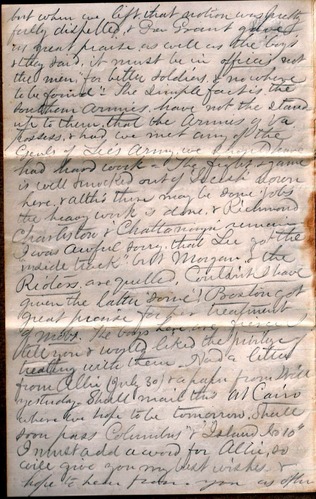 but when we left that notion was pretty
fully dispelled, & Gen Grant gives us
great praise, as well as the boys
& they said, "it must be in officers, not
the men, for better soldiers, & nowhere
to be found." The simple fact is the
Southern Armies have not the stand
up to them, that the Armies of Va
possess, & had we met any of the
Genls of Lee's Army, we should have
had hard work. The fight & game
is well knocked out of "Secesh" down
here, & altho' there may be some jobs
the heavy work is done. & Richmond
Charleston & Chattanooga remain
I was awful sorry, that Lee got "the
inside track" but Morgan & the
Rioters, are quelled, Couldn't I have
given the latter some! Boston got
great praise for her treatment
of mobs. The boys here are
& would liked the privilege
treating with them. Had a letter
from Allie (July 30) & a paper from Will
yesterday. Shall mail this at Cairo
where we hope to be tomorrow. Shall
soon pass Columbus & "Island No 10"
I must add a word for Allie, so
will give you my best wishes, &
hope to hear from you as often